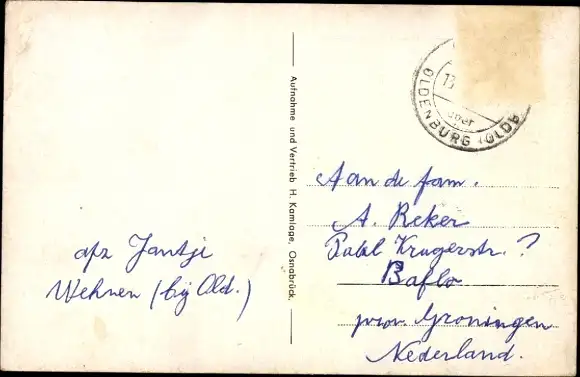 afz Jantje
Wehnen (bij Old.)
Aufnahme und Vertrieb H. Kamlage, Osnabrück.
13
über
OLDENBURG (OLDB
Aan de fam.
A. Reker
Krugerstr. ?
Baflo
prov. Groningen
Nederland.